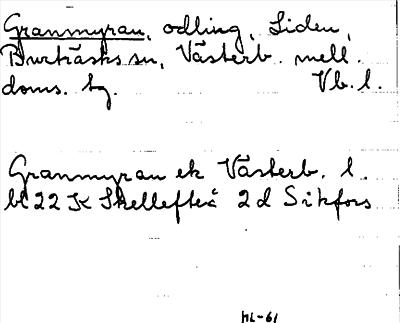 Granmyran, odling, Liden,
Burträsks sn, Västerb. mell.
doms. tg. Vb. l.
Granmyran ek Västerb. l.
bl 22 K Skellefteå 2 d Sikfors